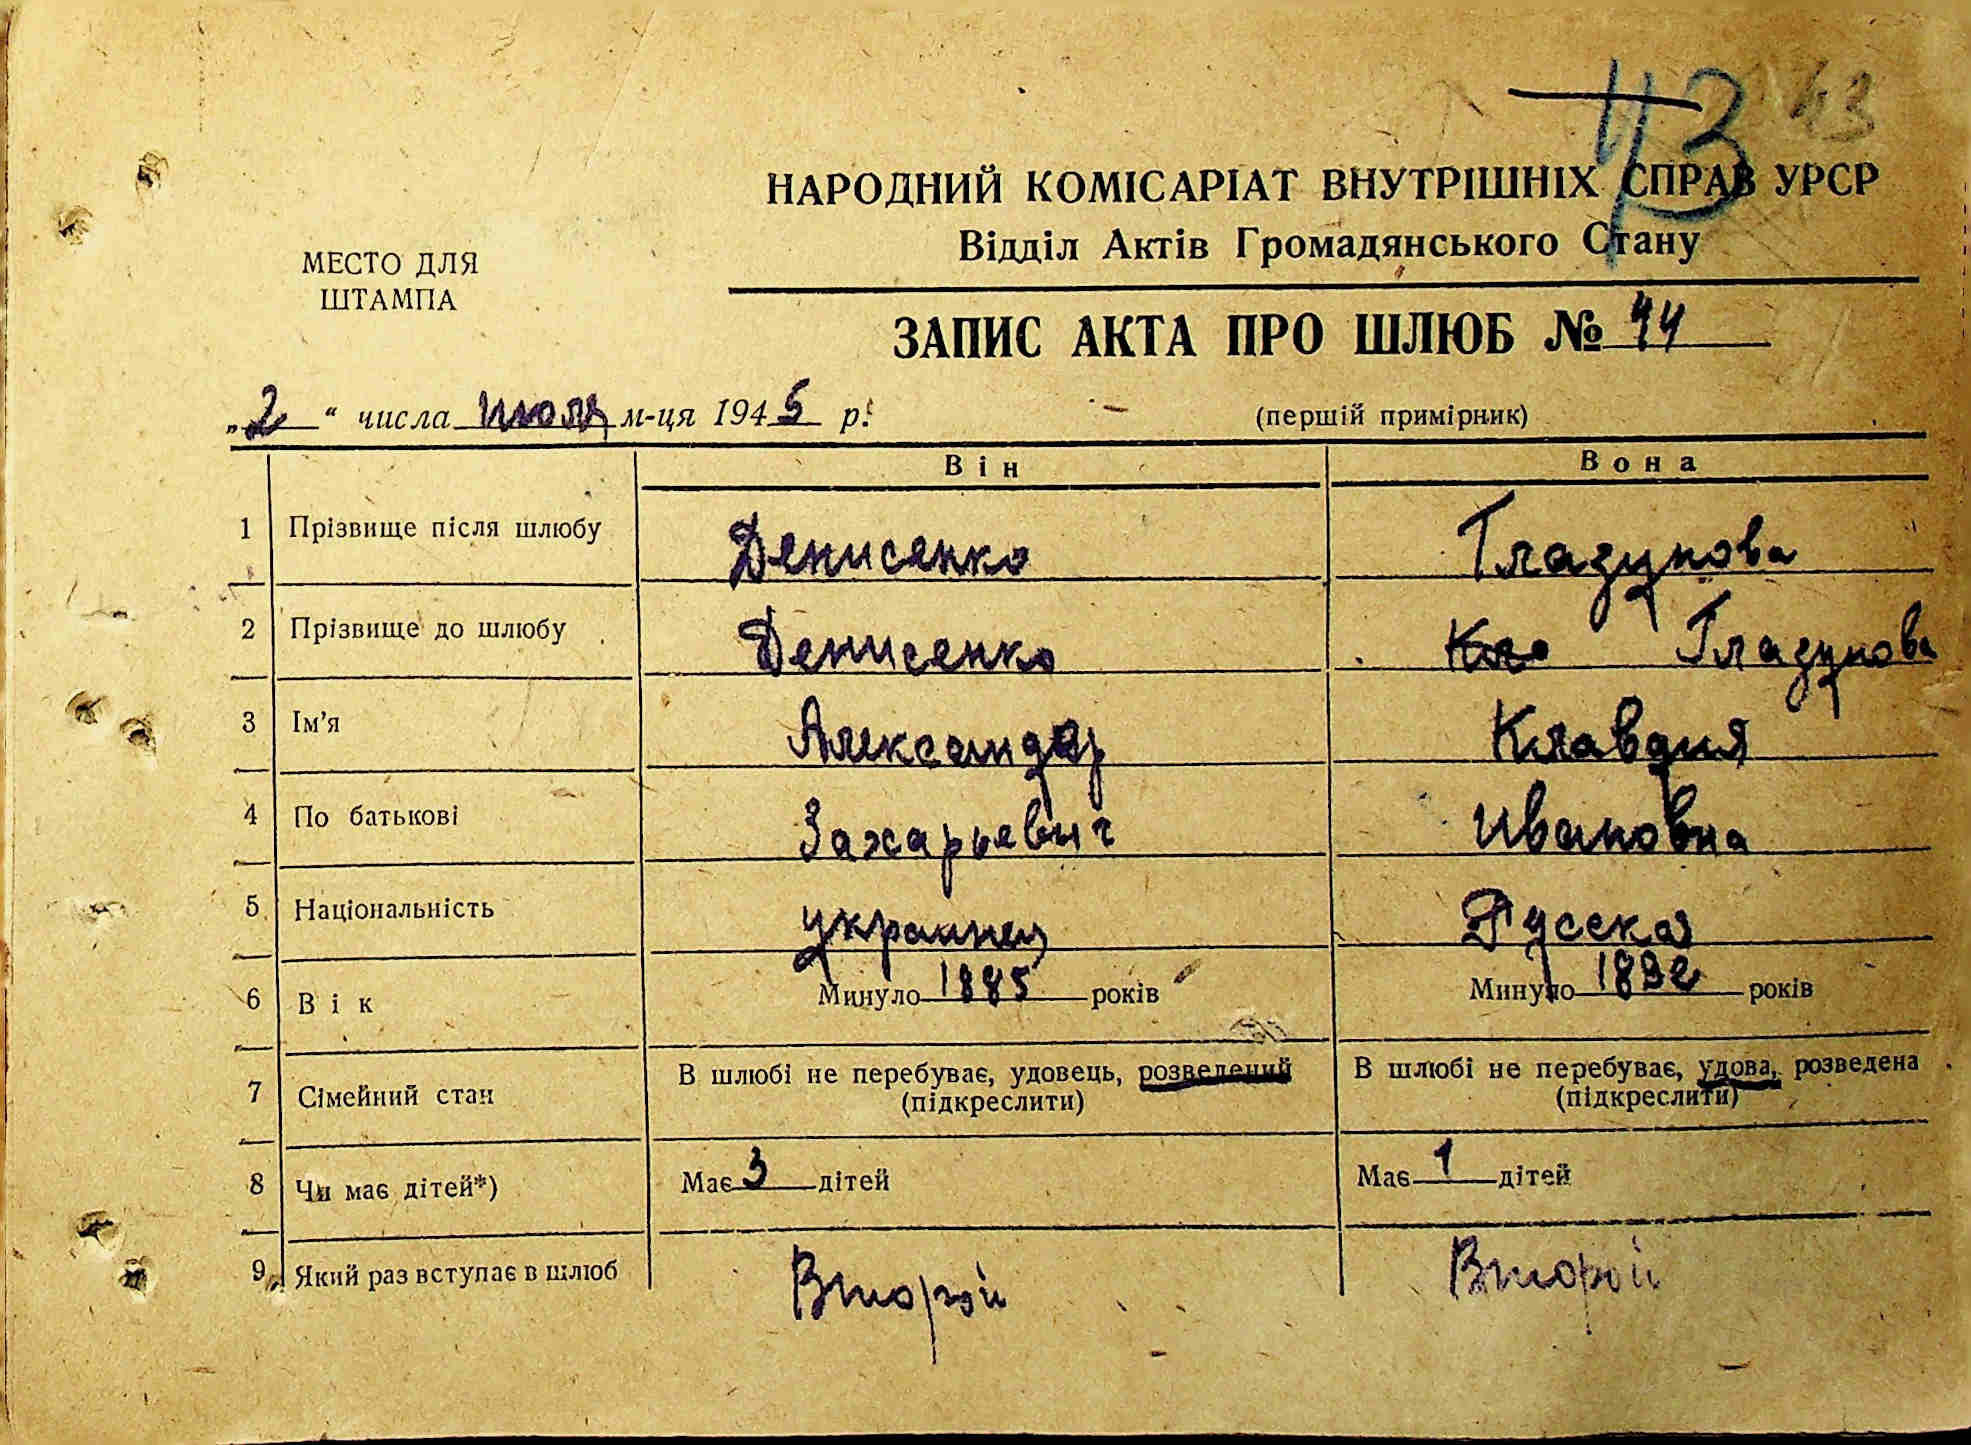 43 43
НАРОДНИЙ КОМІСАРІАТ ВНУТРІШНІХ СПРАВ УРСР
Відділ Актів Громадянського Стану
МЕСТО ДЛЯ
ШТАМПА
ЗАПИС АКТА ПРО ШЛЮБ № 44
„2“ числа июля м-ця 1945 р.
(першій примірник)
Він Вона
1 Прізвище після шлюбу Денисенко Глазунова
2 Прізвище до шлюбу Денисенко Глазунова
3 Ім'я Александр Клавдия
4 По батькові Захарьевич Ивановна
5 Національність украинец Русская
6 Вік Минуло 1885 років Минуло 1892 років
7 Сімейний стан В шлюбі не перебуває, удовець, розведений В шлюбі не перебуває, удова, розведена
(підкреслити) (підкреслити)
8 Чи має дітей*) Має 3 дітей Має 1 дітей
9 Який раз вступає в шлюб Второй Второй